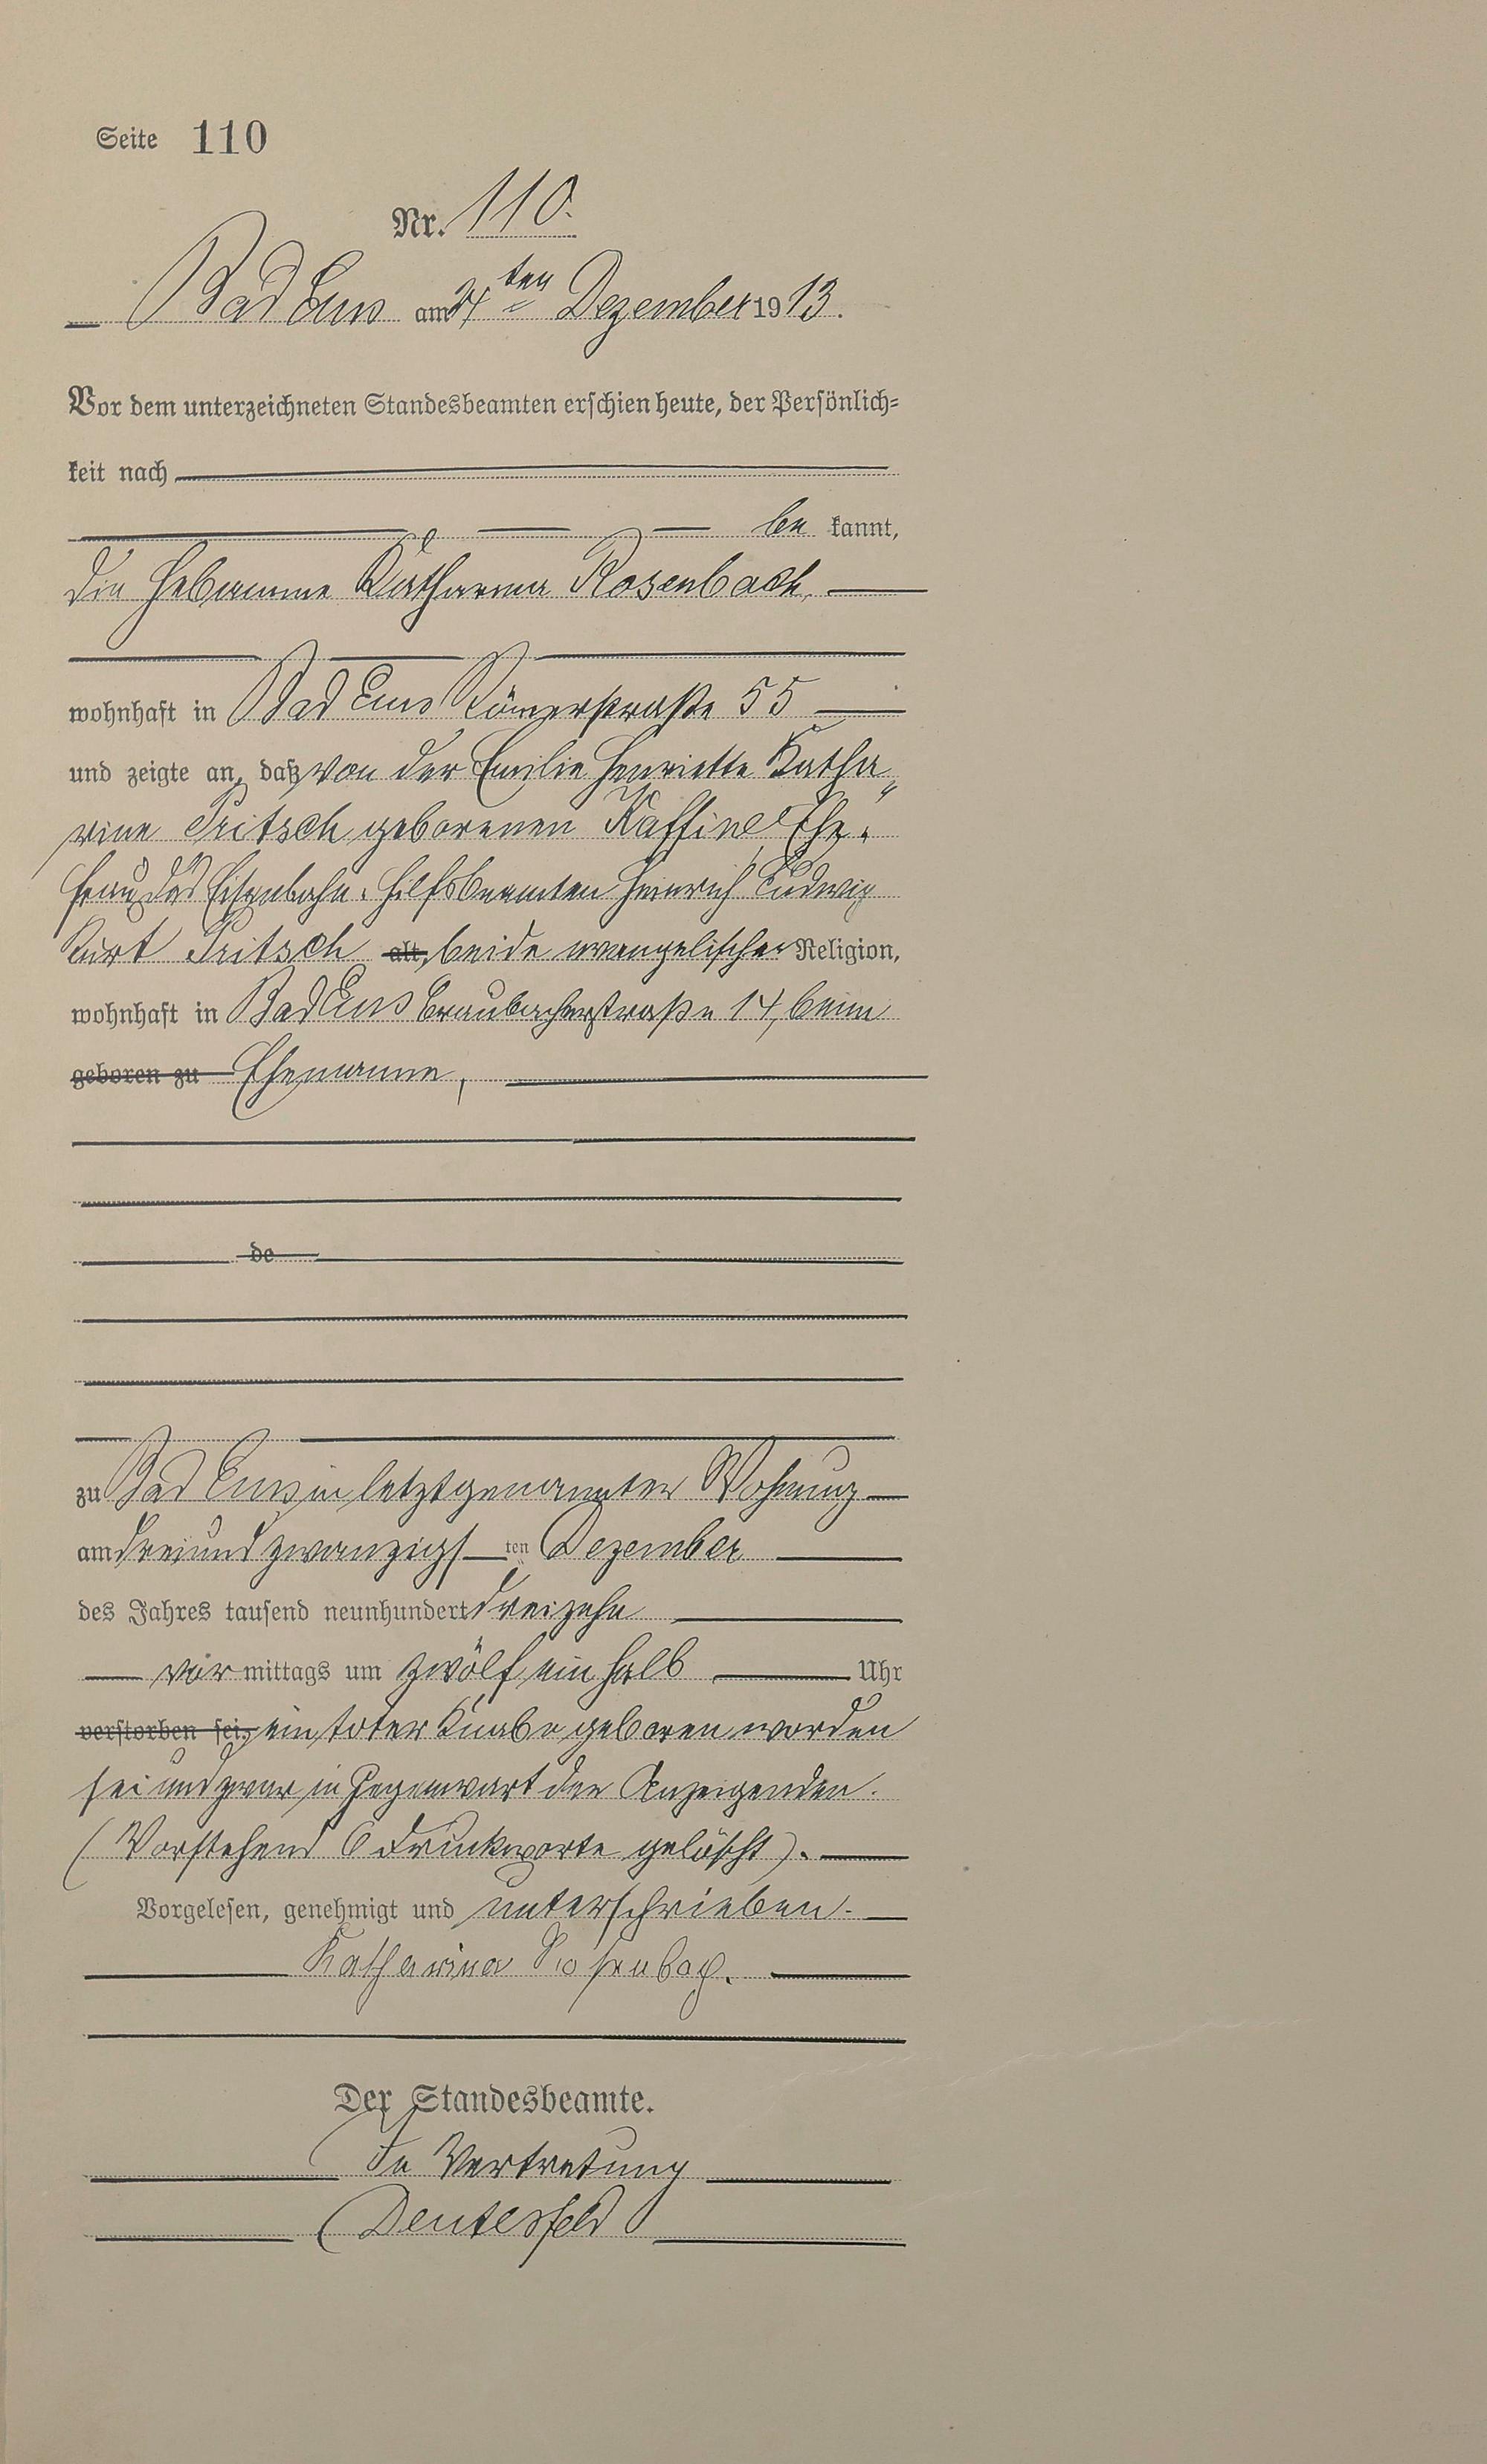 Seite 110
Nr. 110.
Bad Ems am 24ten Dezember 1913.
Vor dem unterzeichneten Standesbeamten erschien heute, der Persönlich-
keit nach
be kannt,
die Hebamme Katharina Rosenbach,
wohnhaft in Bad Ems Römerstraße 55
und zeigte an, daß von der Emilie Henriette Katha„
rine Fritsch geborenen Kaffine, Ehe-
frau des Eisenbahn-Hilfsbeamten Heinrich Ludwig
Kurt Fritsch alt, beide evangelischer Religion,
wohnhaft in Bad Ems Braubacherstraße 14, beim
geboren zu Ehemanne,
de
zu Bad Ems in letztgenannter Wohnung
am dreiundzwanzigsten Dezember
des Jahres tausend neunhundert dreizehn
vor mittags um zwölf ein halb Uhr
verstorben sei, ein toter Knabe geboren worden
sei und zwar in Gegenwart der Anzeigenden.
(Vorstehend 6 Druckworte gelöscht).
Vorgelesen, genehmigt und unterschrieben.
Katharina Rosenbach.
Der Standesbeamte.
In Vertretung